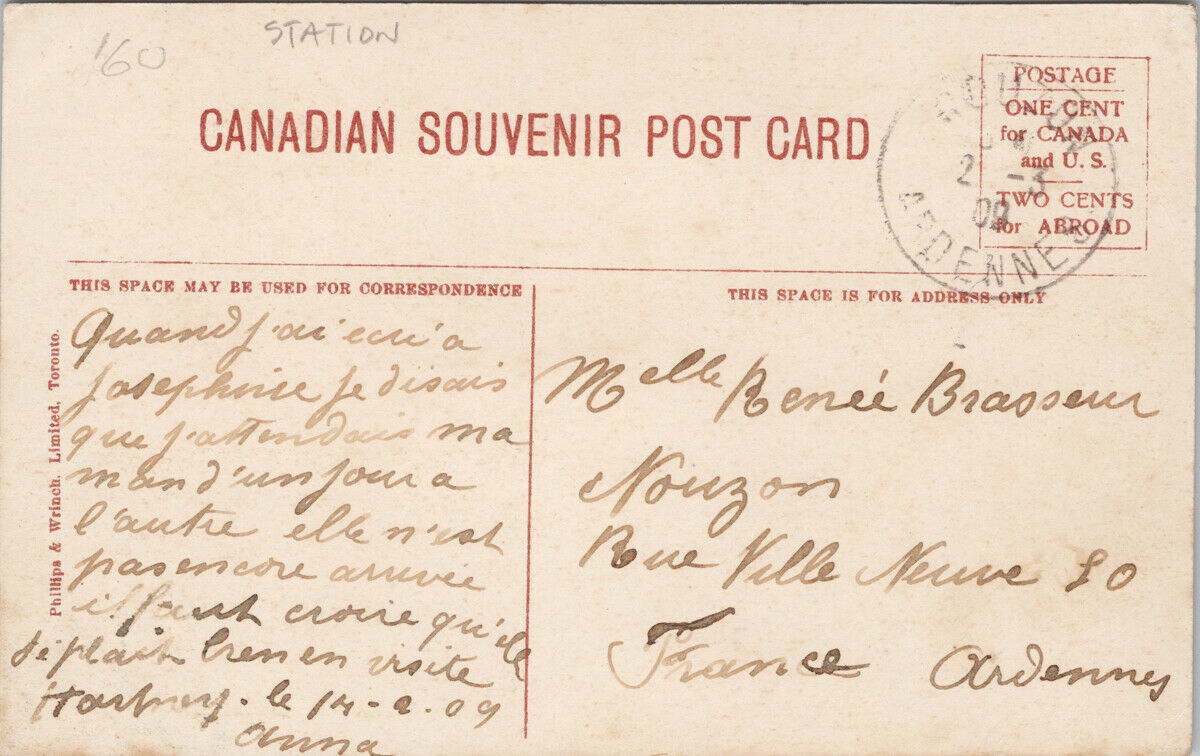 160
STATION
CANADIAN SOUVENIR POST CARD
POSTAGE
ONE CENT
for CANADA
and U. S.
TWO CENTS
for ABROAD
2 -3
09
ARDENNES
THIS SPACE MAY BE USED FOR CORRESPONDENCE
THIS SPACE IS FOR ADDRESS ONLY
Phillips & Wrinch, Limited, Toronto.
Quand j'ai écri a
Josephine je disais
que j'attendais ma
man d'un jour a
l'autre elle n'est
pas encore arrivée
il faut croire qu'elle
se plait bien en visite
Hartney. le 14-2-09
Anna
Melle Renée Brasseur
Nouzon
Rue Ville Neuve 80
France Ardennes